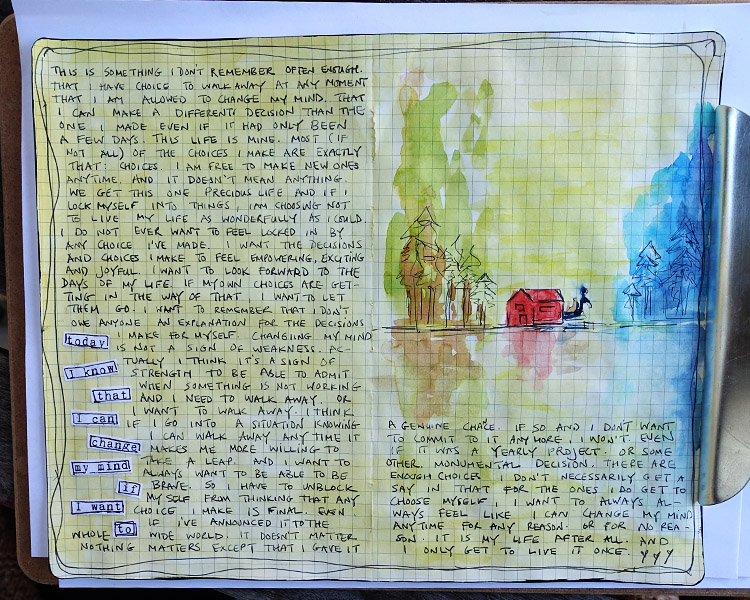 THIS IS SOMETHING I DON'T REMEMBER OFTEN ENOUGH.
THAT I HAVE CHOICE TO WALK AWAY AT ANY MOMENT
THAT I AM ALLOWED TO CHANGE MY MIND. THAT
I CAN MAKE A DIFFERENT DECISION THAN THE
ONE I MADE EVEN IF IT HAD ONLY BEEN
A FEW DAYS. THIS LIFE IS MINE. MOST (IF
NOT ALL) OF THE CHOICES I MAKE ARE EXACTLY
THAT: CHOICES. I AM FREE TO MAKE NEW ONES
ANYTIME. AND IT DOESN'T MEAN ANYTHING.
WE GET THIS ONE PRECIOUS LIFE AND IF I
LOCK MYSELF INTO THINGS, I AM CHOOSING NOT
TO LIVE MY LIFE AS WONDERFULLY AS I COULD.
I DO NOT EVER WANT TO FEEL LOCKED IN BY
ANY CHOICE I'VE MADE. I WANT THE DECISIONS
AND CHOICES I MAKE TO FEEL EMPOWERING, EXCITING
AND JOYFUL. I WANT TO LOOK FORWARD TO THE
DAYS OF MY LIFE. IF MY OWN CHOICES ARE GET-
TING IN THE WAY OF THAT, I WANT TO LET
THEM GO. I WANT TO REMEMBER THAT I DON'T
OWE ANYONE AN EXPLANATION FOR THE DECISIONS
today I MAKE FOR MYSELF. CHANGING MY MIND
IS NOT A SIGN OF WEAKNESS. AC-
I know TUALLY I THINK IT'S A SIGN OF
STRENGTH TO BE ABLE TO ADMIT
WHEN SOMETHING IS NOT WORKING
that AND I NEED TO WALK AWAY. OR
I WANT TO WALK AWAY. I THINK
I can IF I GO INTO A SITUATION KNOWING
I CAN WALK AWAY ANY TIME IT
change MAKES ME MORE WILLING TO
my mind TAKE A LEAP. AND I WANT TO
ALWAYS WANT TO BE ABLE TO BE
if BRAVE. SO I HAVE TO UNBLOCK
MYSELF FROM THINKING THAT ANY
I want CHOICE I MAKE IS FINAL. EVEN
to IF I'VE ANNOUNCED IT TO THE
WHOLE WIDE WORLD. IT DOESN'T MATTER
NOTHING MATTERS EXCEPT THAT I GAVE IT
A GENUINE CHANCE. IF SO AND I DON'T WANT
TO COMMIT TO IT ANYMORE, I WON'T. EVEN
IF IT WAS A YEARLY PROJECT. OR SOME
OTHER, MONUMENTAL DECISION. THERE ARE
ENOUGH CHOICES I DON'T NECESSARILY GET A
SAY IN THAT FOR THE ONES I DO GET TO
CHOOSE MYSELF, I WANT TO ALWAYS AL-
WAYS FEEL LIKE I CAN CHANGE MY MIND
ANYTIME FOR ANY REASON. OR FOR NO REA-
SON. IT IS MY LIFE AFTER ALL. AND
I ONLY GET TO LIVE IT ONCE. YYY